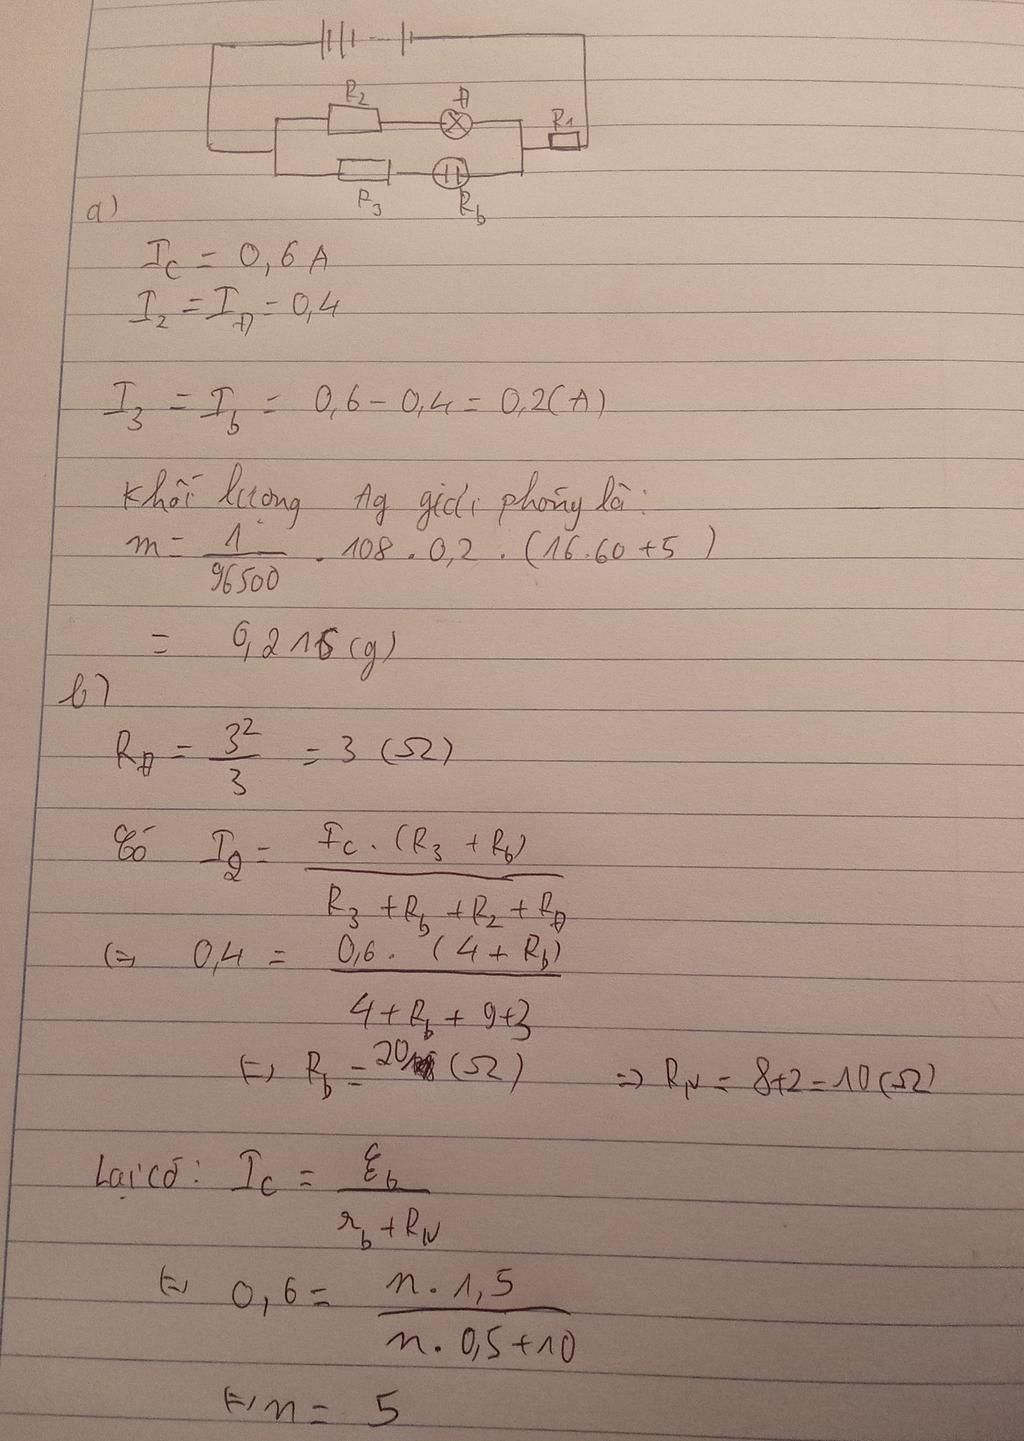 R2 Đ R1
R3 Rb
a)
I_C = 0,6 A
I_2 = I_Đ = 0,4
I_3 = I_b = 0,6 - 0,4 = 0,2 (A)
Khối lượng Ag giải phóng là:
m = \frac{1}{96500} . 108 . 0,2 . (16.60 + 5)
= 0,216 (g)
b)
R_Đ = \frac{3^2}{3} = 3 (Ω)
Có I_2 = \frac{I_C . (R_3 + R_b)}{R_3 + R_b + R_2 + R_Đ}
(=) 0,4 = \frac{0,6 . (4 + R_b)}{4 + R_b + 9 + 3}
(=) R_b = 20 (Ω) => R_N = 8 + 2 = 10 (Ω)
Lại có: I_C = \frac{ξ_b}{r_b + R_N}
(=) 0,6 = \frac{n . 1,5}{n . 0,5 + 10}
(=) n = 5